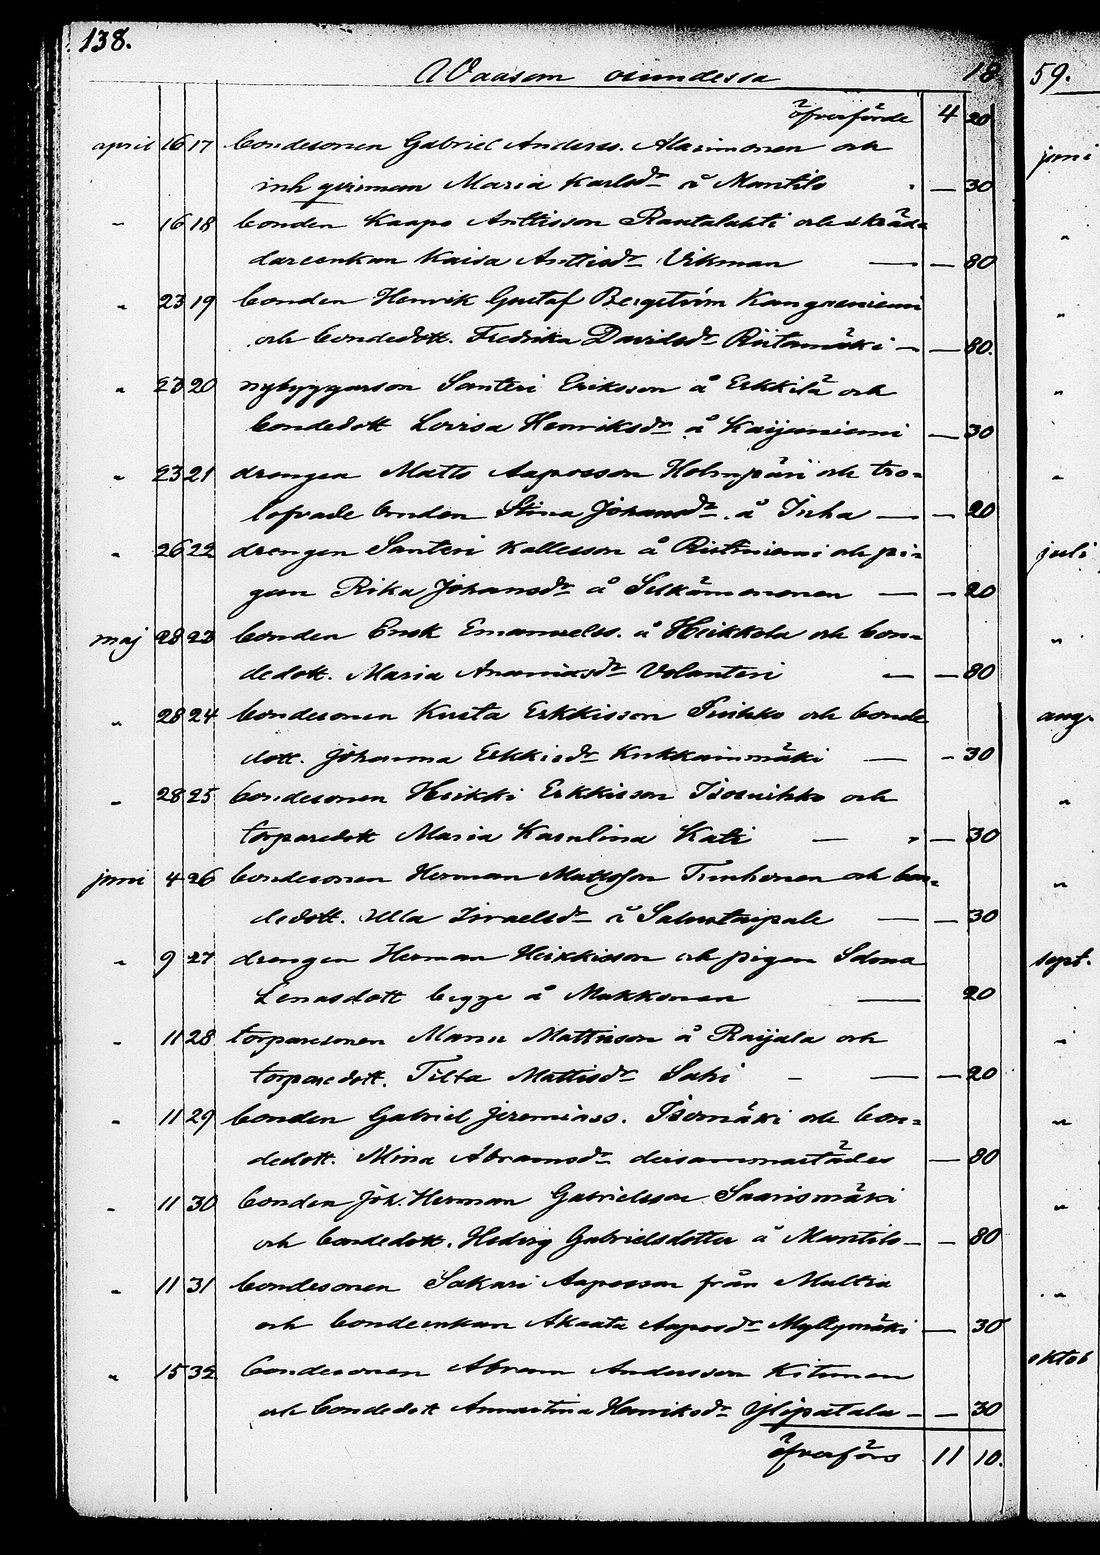 138.
Waasom onundessa 18 59.
öfverförde 4 20
april 16 17 bondesonen Gabriel Anderss. Alasimonen och
inh qvinnan Maria Karlsdr å Mantila — 30
" 16 18 bonden Kaapo Anttisson Rantalahti och skräd=
dareenkan Kaisa Anttisdr Vikman — — 80
" 23 19 bonden Henrik Gustaf Bergström Kangasniemi
och bondedott. Fredrika Davidsdr Riitamäki — — 80.
" 23 20 nybyggarson Santeri Eriksson å Erkkilä och
bondedott Lovisa Henriksdr å Kaijaniemi — 30
" 23 21 drengen Matts Aaposson Holmpäri och tro=
lofvade bonden Stina Johansdr. å Inha — — 20
" 26 22 drengen Santeri Kallesson å Ristiniemi och pi=
gan Rika Johansdr å Selkämenonen — — 20
maj 28 23 bonden Ensk Emanuelss. å Heikkola och bon=
dedott. Maria Ananiasdr Volanteri — — 80
" 28 24 bondesonen Kusta Erkkisson Suihko och bonde
dott. Johanna Erkkisdr Kukkainmäki — — 30
" 28 25 bondesonen Heikki Erkkisson Isosuihko och
torparedott Maria Karulina Kati — — 30
juni 4 26 bondesonen Herman Mattsson Tunhonen och bon=
dedott. Ulla Israelsdr å Salmtaipale — — 30
" 9 27 drengen Herman Heikkisson och pigan Sdma
Lenasdott begge å Makkonen — 20
" 11 28 torparesonen Manu Mattisson å Raijala och
torparedott. Tilta Mattisdr Sahi — — — 20
" 11 29 bonden Gabriel Jeremiass. Isomäki och bon=
dedott. Mina Abramsdr dersammastädes — 80
" 11 30 bonden Joh. Herman Gabrielsson Saarismäki
och bondedott. Hedvig Gabrielsdotter å Mantila — — 80
" 11 31 bondesonen Sakari Aaposson från Multia
och bondeenkan Akaata Aaposdr Myllymäki — 30
" 15 32 bondesonen Abram Andersson Kitunen
och bondedott Annastina Henriksdr Ylipatala — — 30
öfverförs 11 10.
juni
"
"
"
"
juli
"
aug.
"
"
sept.
"
"
"
"
oktob